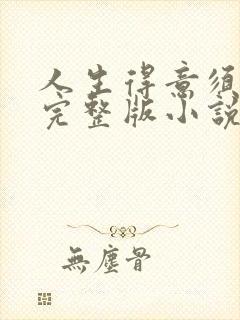 人生得意須
完整版小說
無塵骨